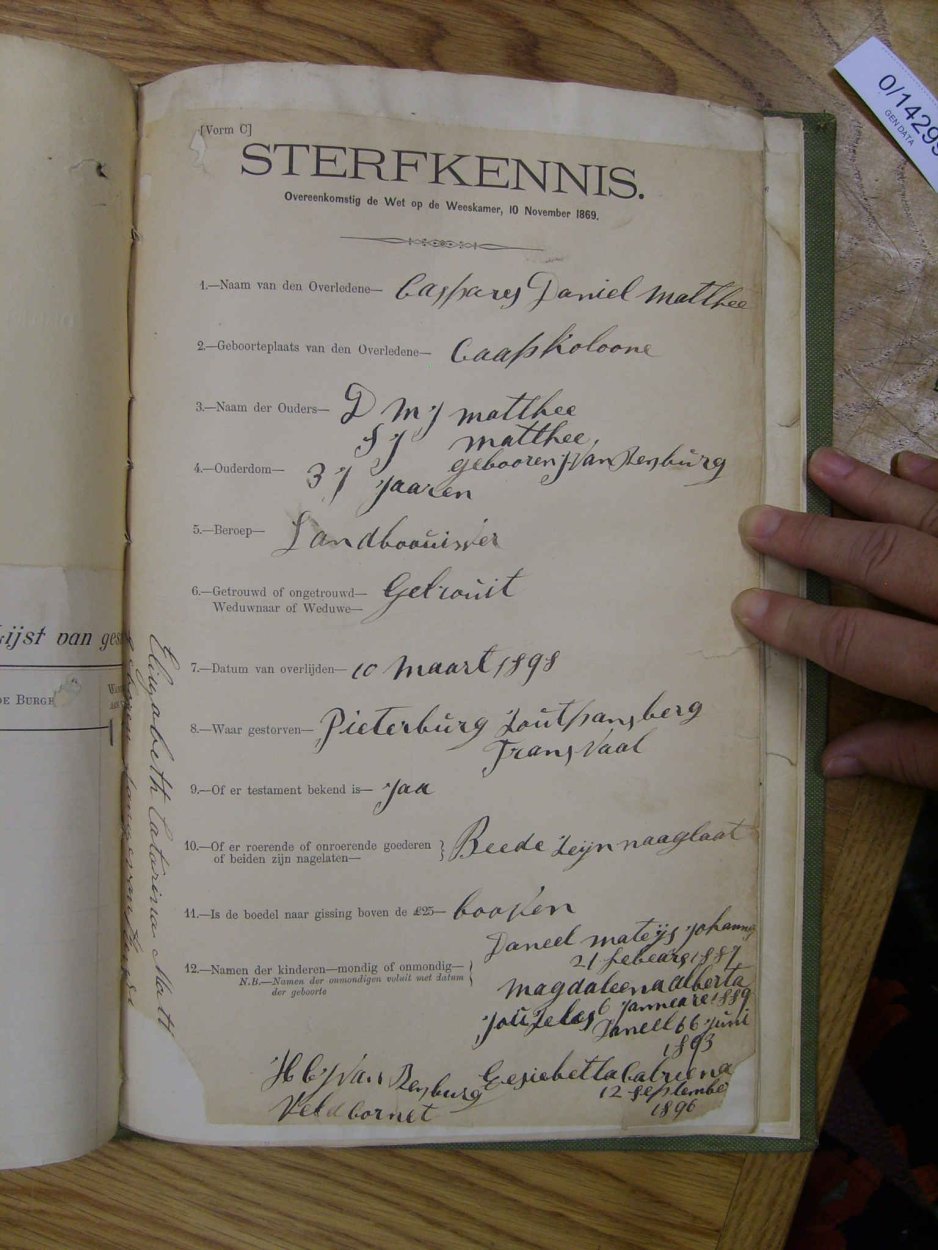 [Vorm C]
STERFKENNIS.
Overeenkomstig de Wet op de Weeskamer, 10 November 1869.
1.—Naam van den Overledene— Caspares Daniel Matthee
2.—Geboorteplaats van den Overledene— Caapkoloone
3.—Naam der Ouders— D M J matthee
S J matthee,
gebooren J van Rensburg
4.—Ouderdom— 37 jaaren
5.—Beroep— Landboouwer
6.—Getrouwd of ongetrouwd— Getrouit
Weduwnaar of Weduwe—
7.—Datum van overlijden— 10 Maart 1898
8.—Waar gestorven— Pieterburg Zoutpansberg
Transvaal
9.—Of er testament bekend is— Jaa
10.—Of er roerende of onroerende goederen } Beede Zeyn naaglaat
of beiden zijn nagelaten—
11.—Is de boedel naar gissing boven de £25— booven
12.—Namen der kinderen—mondig of onmondig— }
N.B.—Namen der onmondigen voluit met datum
der geboorte
Daneel mateys johanns
21 febeare 1887
magdaleena alberta
Janneare 1889
Daneel 6 Juni
1893
12 September
1896
H C J Van Rensburg
Veldcornet
Elizabeth Catarina Matt
Lijst van ges
DE BURGH
0/14299
GEN DATA